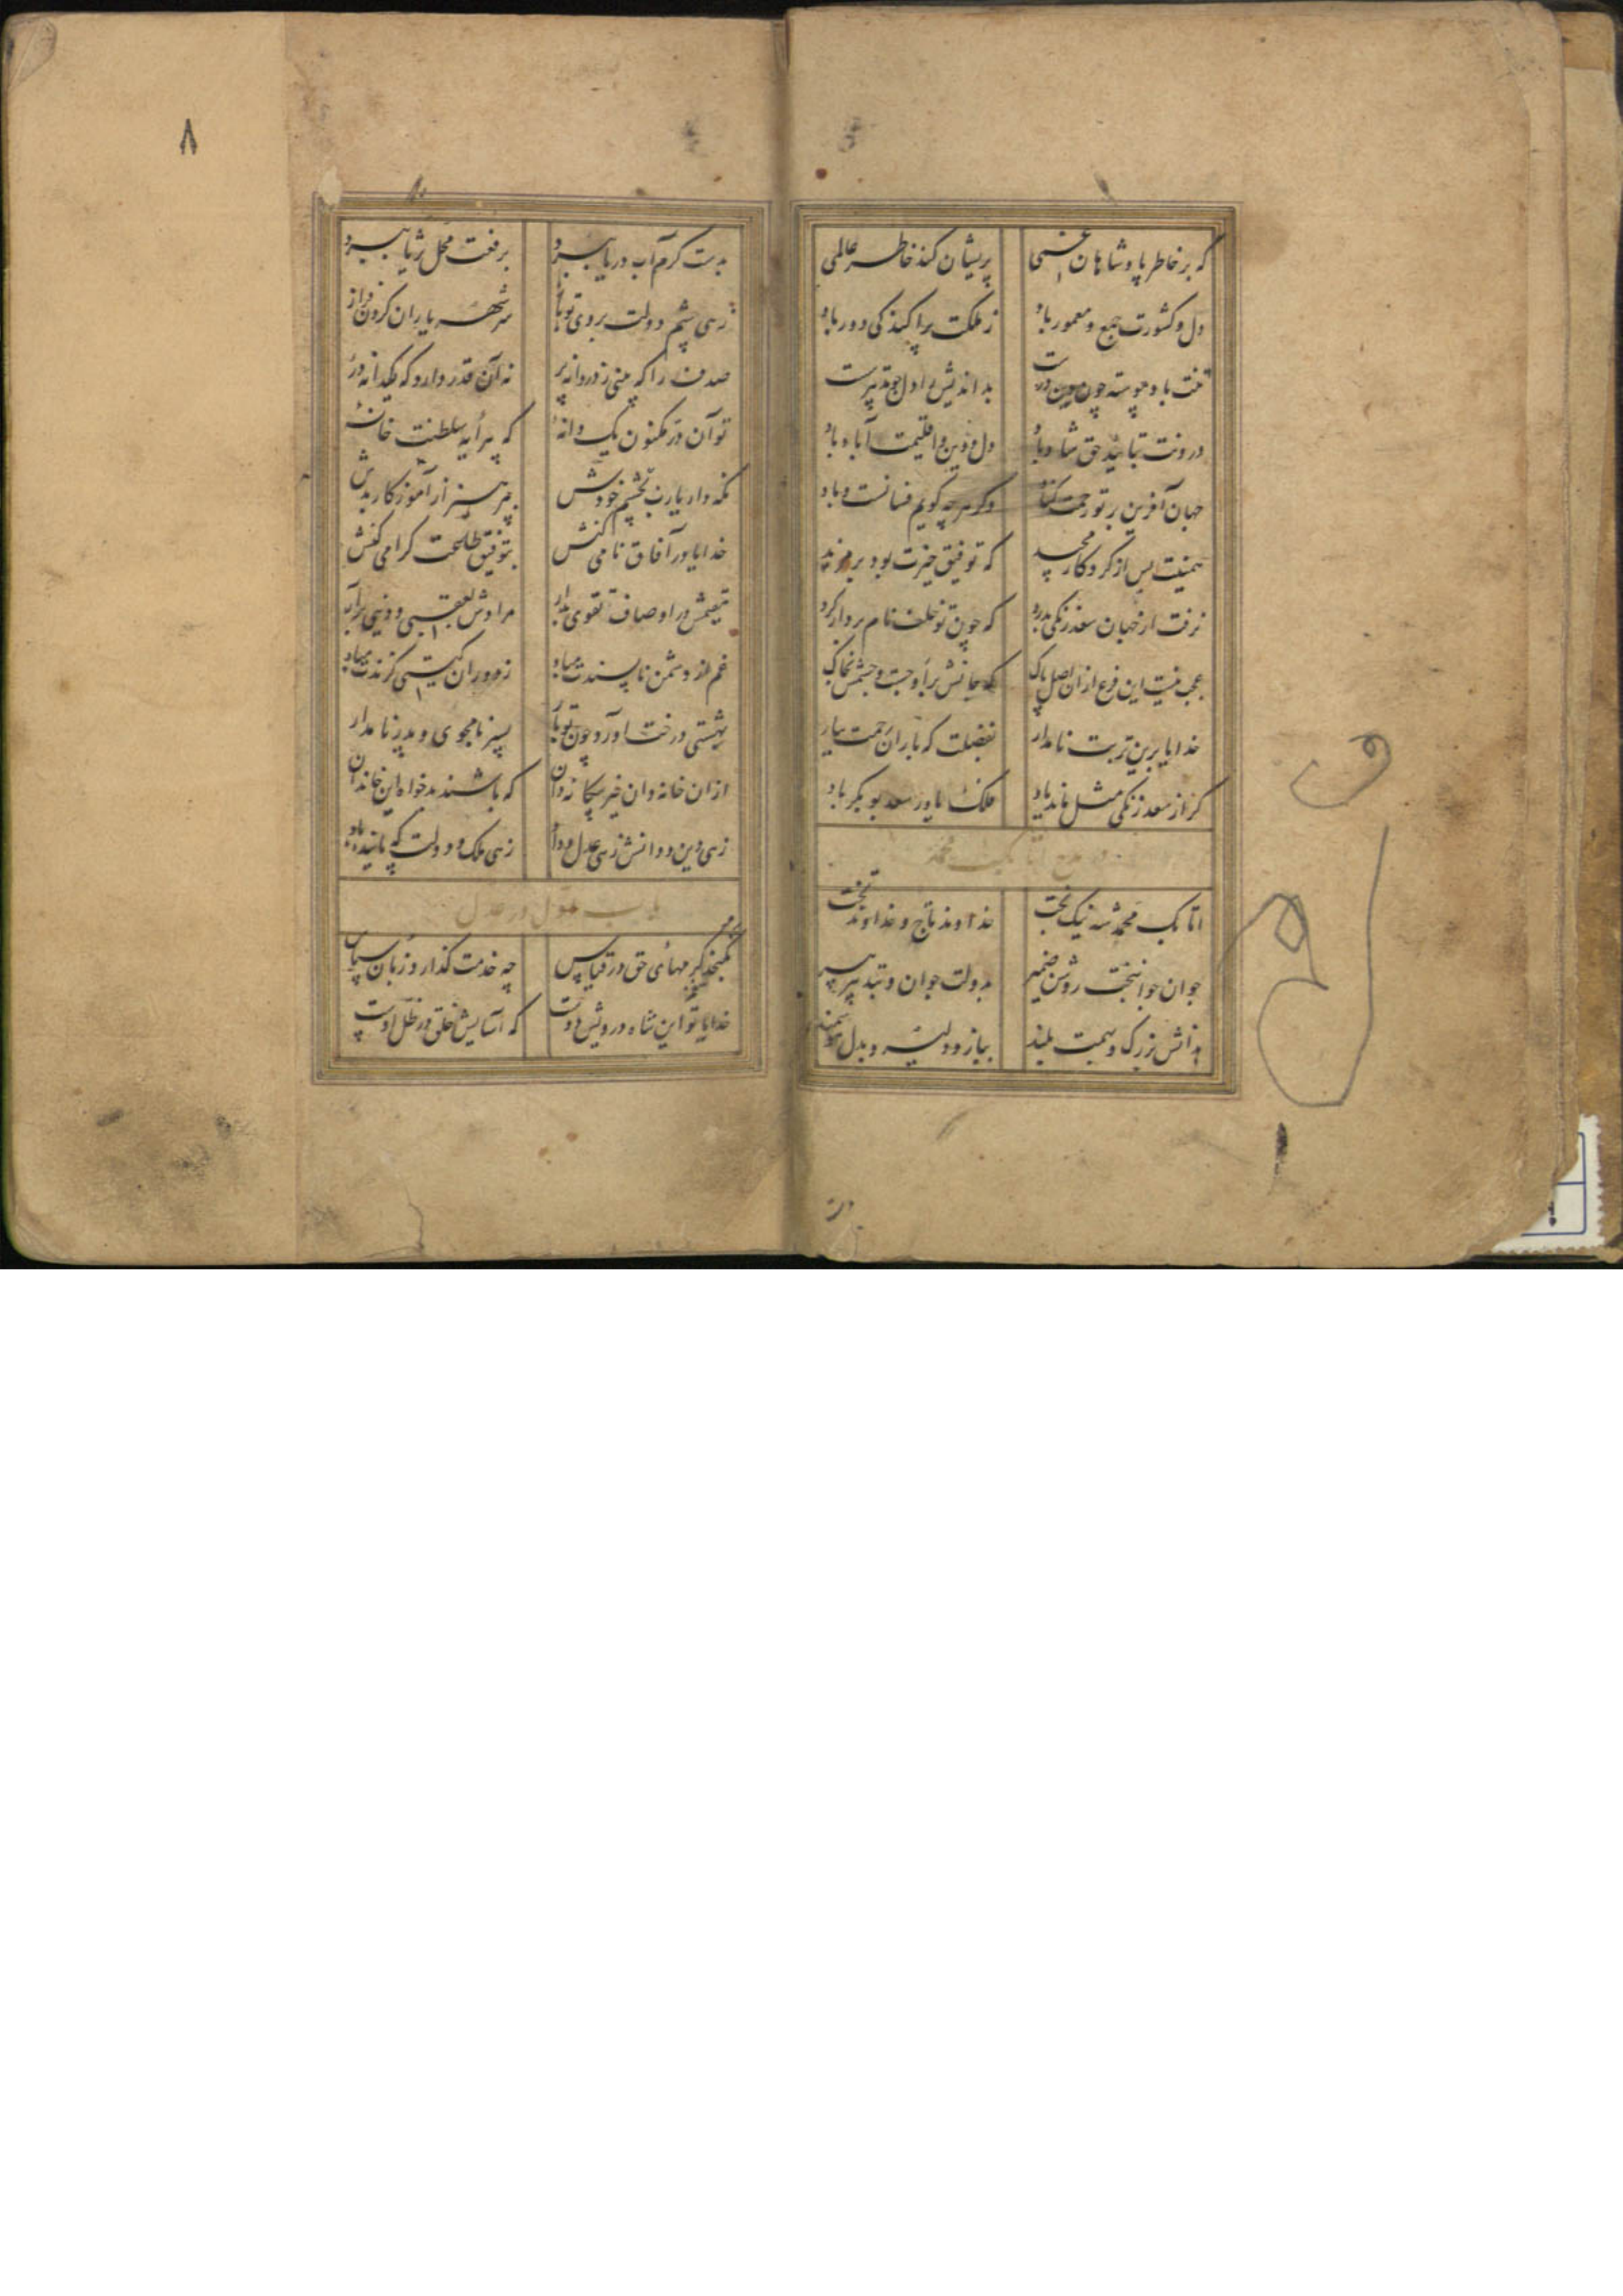 که بر خاطر پادشاهان غمی پریشان کند خاطر عالمی
دل و کشورت جمع و معمور باد ز ملکت پراکندکی دور باد
تنت باد پیوسته چون دین درست بداندیش را دل چو تدبیر سست
درونت بتایید حق شاد باد دل و دین و اقلیمت آباد باد
جهان آفرین بر تو رحمت کناد دکر هرچه کویم فسانست و باد
همینت بس از کردکار مجید که توفیق خیرت بود بر مزید
نرفت از جهان سعد زنکی بدرد که چون تو خلف نام بردار کرد
عجب نیست این فرع از ان اصل پاک که جانش بر اوجست و جسمش بخاک
خدایا برین تربت نامدار بفضلت که باران رحمت ببار
کر از سعد زنکی مثل ماند یاد فلک یاور سعد بوبکر باد
در مدح اتابک محمد
اتابک محمد شه نیک بخت خداوند تاج و خداوند تخت
جوان جوانبخت روشن ضمیر بدولت جوان و بتدبیر پیر
بدانش بزرک و بهمت بلند ببازو دلیر و بدل هوشمند
بدست کرم آب دریا ببرد برفعت محل ثریا ببرد
زهی چشم دولت بروی تو باز سر شهریاران کردن فراز
صدف را که بینی ز دردانه پر نه آن قدر دارد که یکدانه در
تو آن در مکنون یک دانهٔ که پیرایه سلطنت خانهٔ
نکه دار یارب بچشم خودش بپرهیز از آموزکار بدش
خدایا در آفاق نامی کنش بتوفیق طاعت کرامی کنش
مقیمش در اوصاف تقوی بدار مرادش بعقبی و دنیی برآر
غم از دشمن ناپسندت مباد ز دوران کیتی کزندت مباد
بهشتی درخت آورد چون تو بار پسر نامجوی و پدر نامدار
از ان خانه دان خیر بیکانه دان که باشند بدخواه این خاندان
زهی دین و دانش زهی عدل و داد زهی ملک و دولت که پاینده باد
باب اول در عدل
نکنجد کرمهای حق در قیاس چه خدمت کذارد زبان سپاس
خدایا تو این شاه درویش دوست که آسایش خلق در ظل اوست
۸